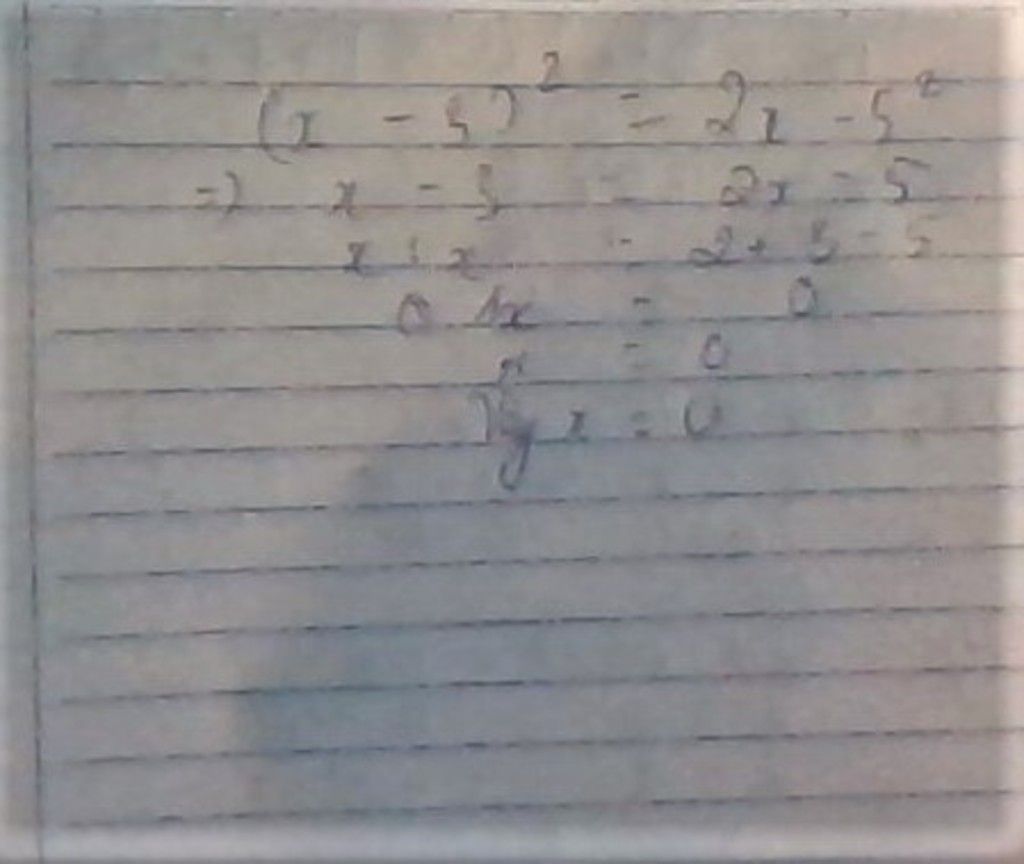 (x - 5)² = 2x - 5²
=> x - 5 = 2x = 5
x : x = 2 + 5 - 5
0 1x = 0
x = 0
Vậy x = 0